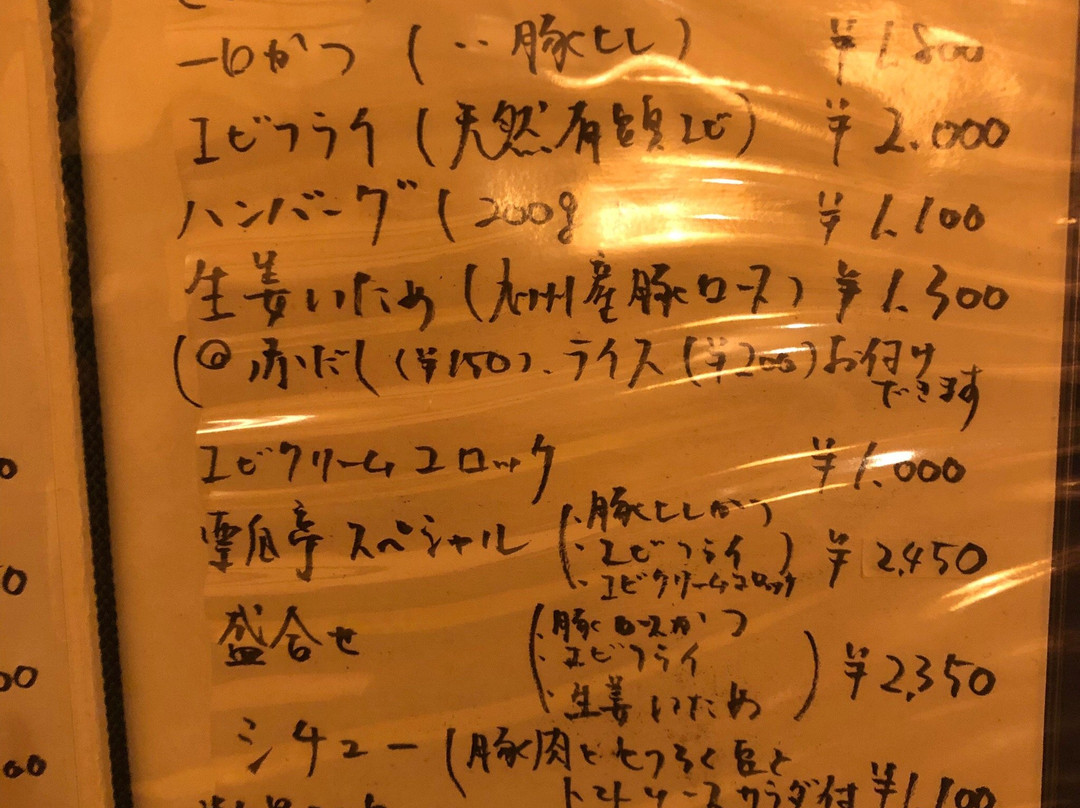 一口かつ (‥豚ヒレ) ¥1.800
エビフライ (天然有頭エビ) ¥2.000
ハンバーグ (200g ¥1.100
生姜いため (九州産豚ロース) ¥1.300
(◎ 赤だし (¥150)、ライス (¥200) お付け
できます
エビクリームコロッケ ¥1.000
瓢亭 スペシャル (・豚ヒレかつ
・エビフライ) ¥2,450
・エビクリームコロッケ
盛合せ (・豚ロースかつ
・エビフライ
・生姜いため) ¥2,350
シチュー (豚肉と
サラダ付 ¥1,100